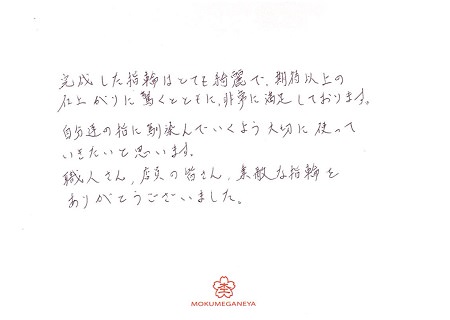 完成した指輪はとても綺麗で、期待以上の
仕上がりに驚くとともに、非常に満足しております。
自分達の指に馴染んでいくよう大切に使って
いきたいと思います。
職人さん、店員の皆さん、素敵な指輪を
ありがとうございました。
MOKUMEGANEYA